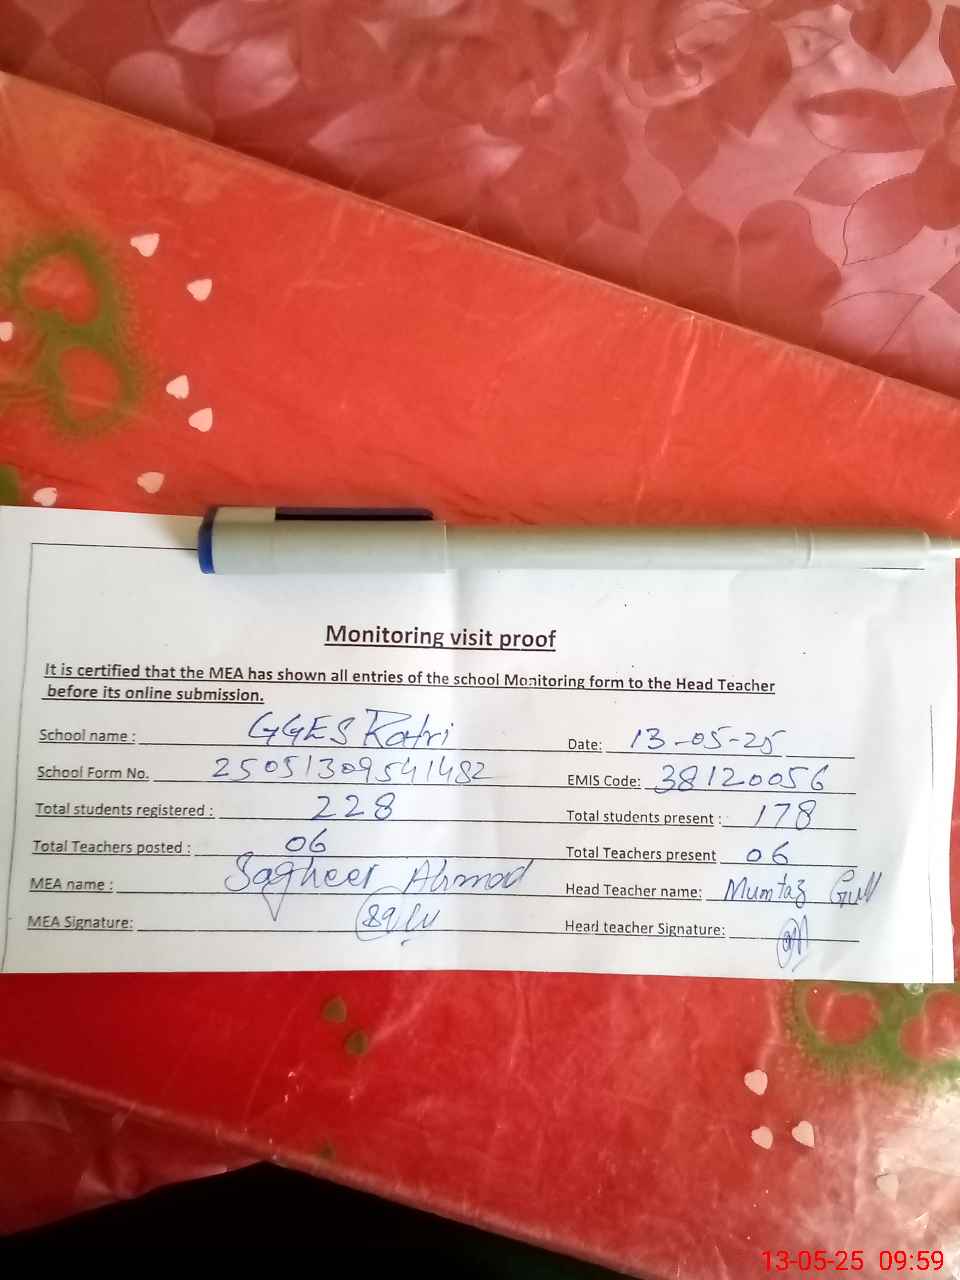 Monitoring visit proof
It is certified that the MEA has shown all entries of the school Monitoring form to the Head Teacher
before its online submission.
School name : GGES Ratri Date: 13-05-25
School Form No. 25051309541482 EMIS Code: 38120056
Total students registered : 228 Total students present : 178
Total Teachers posted : 06 Total Teachers present 06
MEA name : Sagheer Ahmad Head Teacher name: Mumtaz Gull
MEA Signature: Head teacher Signature:
13-05-25 09:59